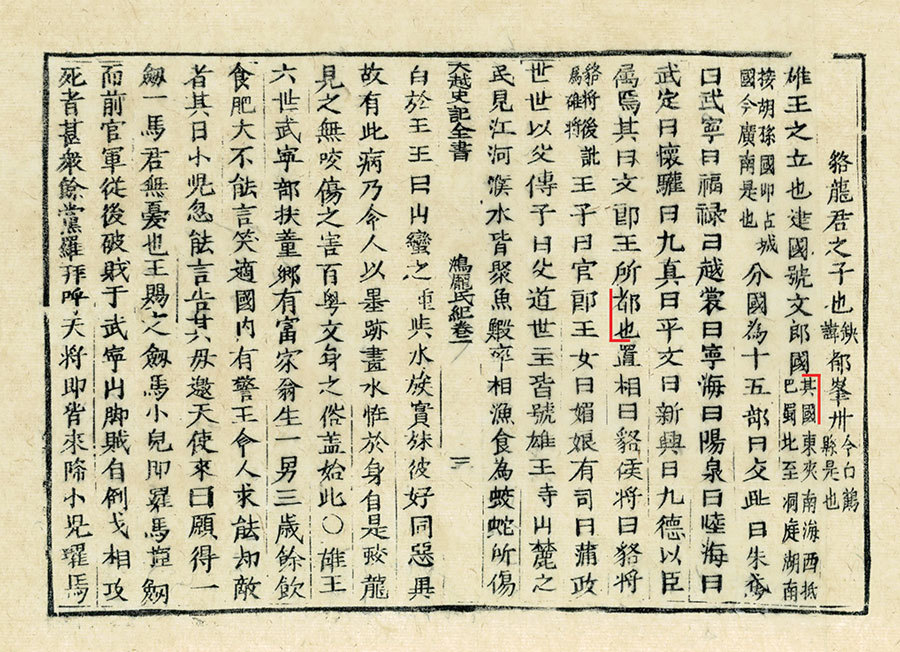 貉龍君之子也缺諱郁峯州今白鶴縣是也
雄王之立也建國號文郎國其國東夾南海西抵巴蜀北至洞庭湖南
按胡孫國即占城國今廣南是也分國為十五部曰交趾曰朱鳶
曰武寧曰福禄曰越裳曰寧海曰陽泉曰陸海曰
武定曰懷驩曰九真曰平文曰新興曰九德以臣
属焉其曰文郎王所都也置相曰貉侯將曰貉將
貉將後訛為雄將王子曰官郎王女曰媚娘有司曰蒲政
世世以父傳子曰父道世主皆號雄王寺山麓之
民見江河濮水皆聚魚蝦率相漁食為蛟蛇所傷
大越史記全書 鴻厖氏紀卷一 二
白於王王曰山蠻之種與水族實殊彼好同惡異
故有此病乃令人以墨跡畫水怪於身自是蛟龍
見之無咬傷之害百粤文身之俗盖始此○雄王
六世武寧部扶董鄉有富家翁生一男三歲餘飲
食肥大不能言笑適國内有警王令人求能却敵
者其日小兒忽能言告其母邀天使來曰願得一
劔一馬君無憂也王賜之劔馬小兒即躍馬揮劔
而前官軍從後破賊于武寧山脚賊自倒戈相攻
死者甚衆餘黨羅拜呼天將即皆來降小兒躍馬